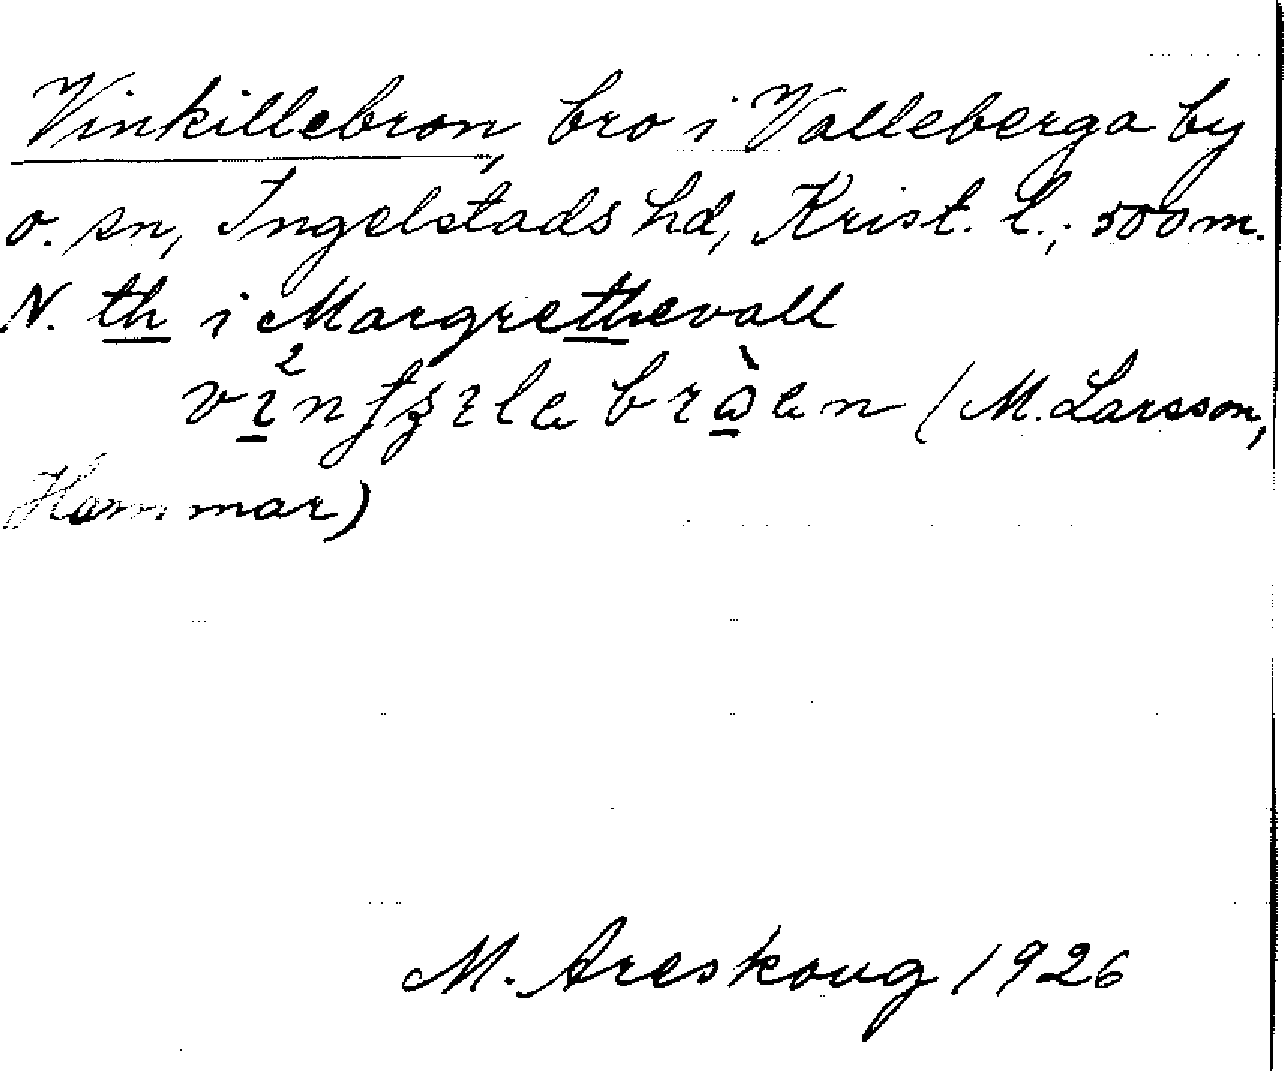 Vinkillebron, bro i Valleberga by
o. sn, Ingelstads hd, Krist. l.; 500 m.
N. th i Margrethevall
(M. Larsson,
Hammar)
M. Areskoug 1926